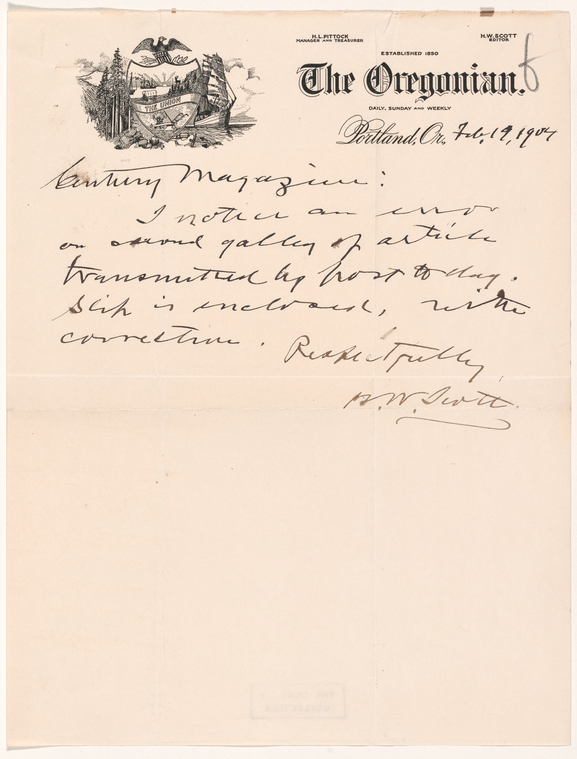 H.L. PITTOCK
MANAGER AND TREASURER
H.W. SCOTT
EDITOR
ESTABLISHED 1850
The Oregonian.
DAILY, SUNDAY AND WEEKLY
THE UNION
Portland, Or., Feb. 19, 1904
Century Magazine:
I notice an error
on second galley of article
transmitted by post to day.
Slip is enclosed, with
correction.
Respectfully,
H. W. Scott